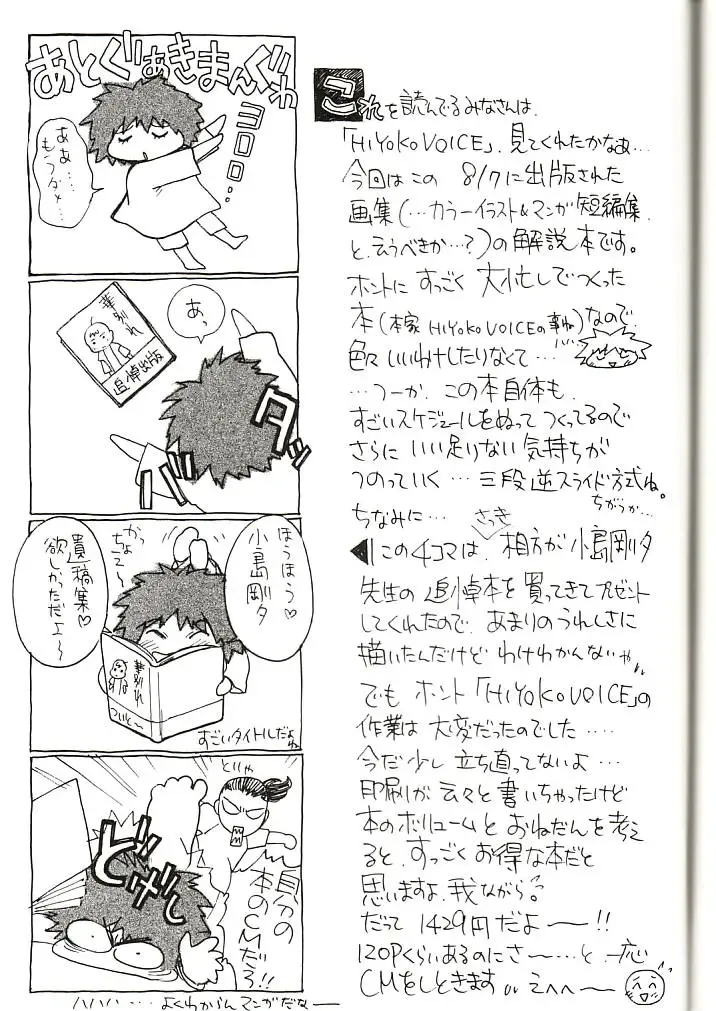 あとぐぁきまんぐゎ
ヨロロ…
ああ…
もうダメ…
あっ
華別れ
追悼出版
ガバッ
ほうほう♡
小島剛夕
かっちょて〜
遺稿集♡
欲しかっただよ〜
華別れ
すごいタイトルだよね
とりゃ
どげし
自分の
本のCMだろ!!
ハハハ…よくわからんマンガだなー
これを読んでるみなさんは、
「HIYOKO VOICE」、見てくれたかなぁ…
今回はこの 8/7に出版された
画集(…カラーイラスト&マンガ短編集、
と、云うべきか…?)の解説本です。
ホントに すっごく 大忙しでつくった
本(本家 HIYOKO VOICEの事ね)なので、
色々 いいわけしたりなくて…
…つーか、この本自体も、
すごいスケジュールをぬって つくってるので
さらに いい足りない気持ちが
つのっていく… 三段逆スライド方式ね。
ちがうか…
ちなみに… さっき
◀この4コマは、相方が小島剛夕
先生の 追悼本を買ってきてプレゼント
してくれたので、あまりのうれしさに
描いたんだけど わけわかんないや
でも ホント「HIYOKO VOICE」の
作業は 大変だったのでした…
今だ少し 立ち直ってないよ…
印刷が云々と 書いちゃったけど
本のボリュームと おねだんを考え
ると、すっごく お得な本だと
思いますよ、我ながら。
だって 1429円だよ——!!
120Pくらいあるのにさ〜…と、一応
CMをしときます えへへー